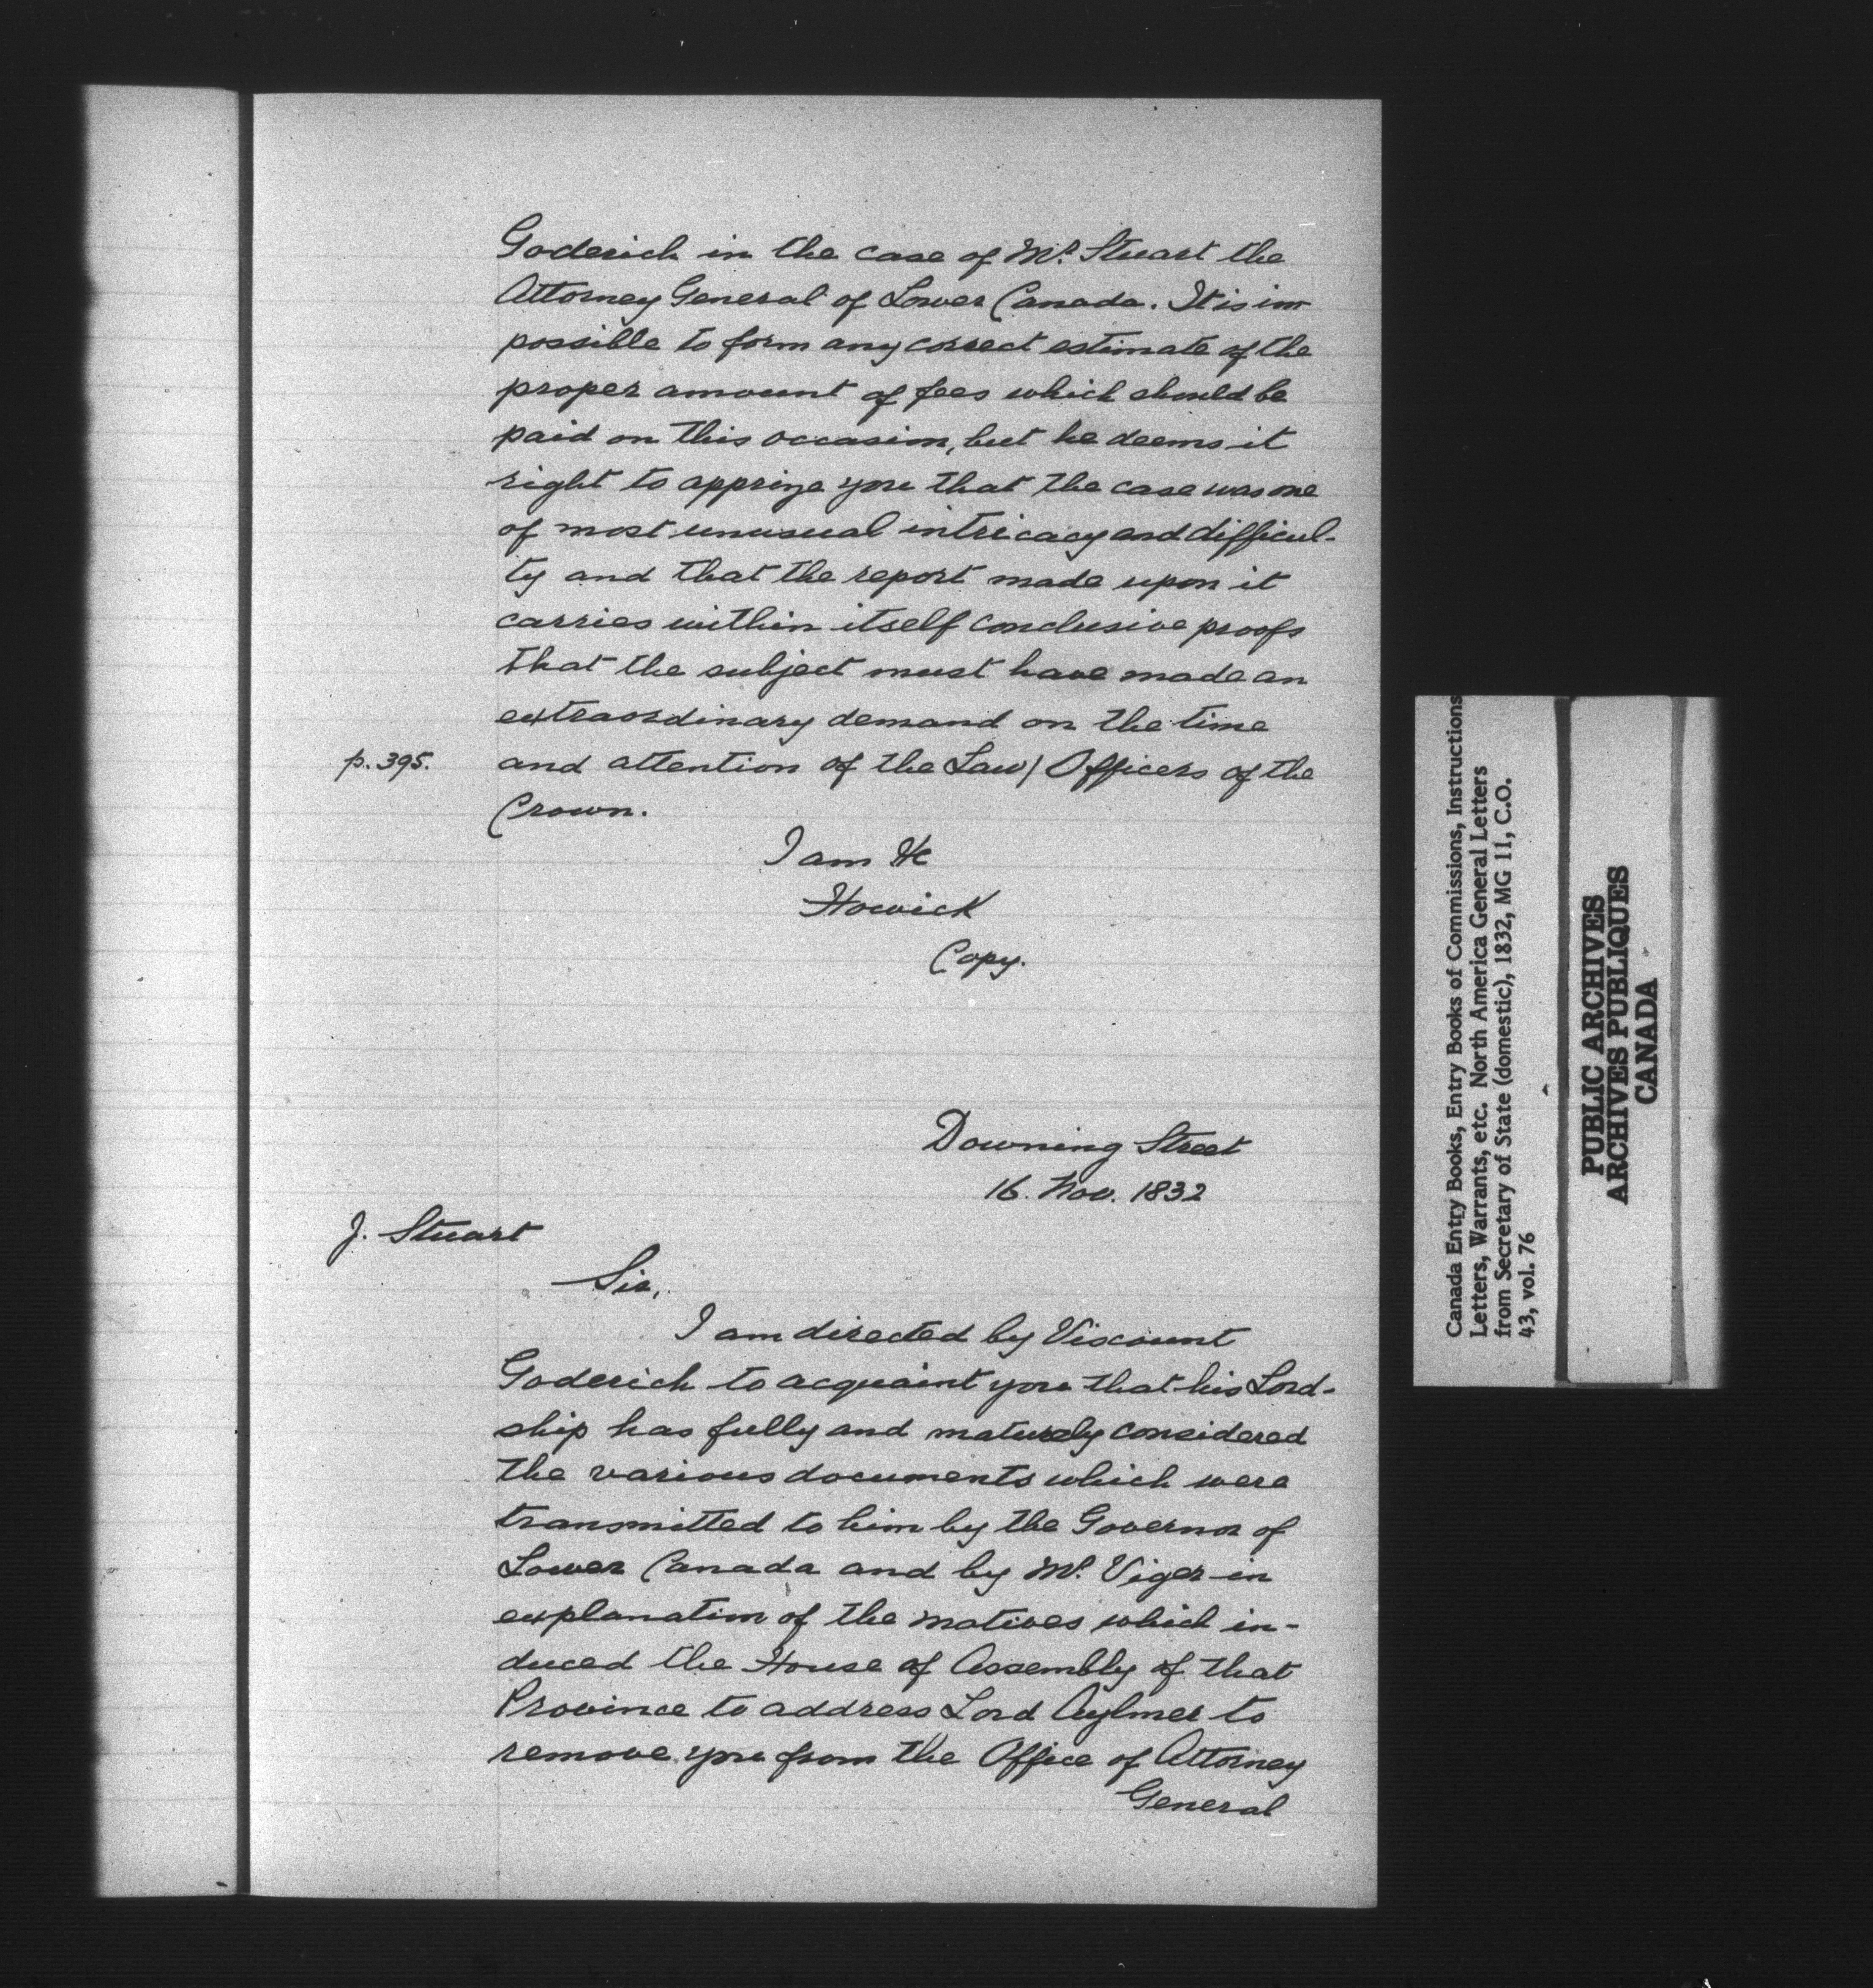 Goderich in the case of Mr. Stuart the
Attorney General of Lower Canada. It is im-
possible to form any correct estimate of the
proper amount of fees which should be
paid on this occasion, but he deems it
right to apprize you that the case was one
of most unusual intricacy and difficul-
ty and that the report made upon it
carries within itself conclusive proofs
that the subject must have made an
extraordinary demand on the time
p. 395. and attention of the Law/ Officers of the
Crown.
I am &c
Howick
Copy.
Downing Street
16. Nov. 1832
J. Stuart
Sir,
I am directed by Viscount
Goderich to acquaint you that his Lord-
ship has fully and maturely considered
the various documents which were
transmitted to him by the Governor of
Lower Canada and by Mr. Viger in
explanation of the motives which in-
duced the House of Assembly of that
Province to address Lord Aylmer to
remove you from the Office of Attorney
General
Canada Entry Books, Entry Books of Commissions, Instructions
Letters, Warrants, etc. North America General Letters
from Secretary of State (domestic), 1832, MG 11, C.O.
43, vol. 76
PUBLIC ARCHIVES
ARCHIVES PUBLIQUES
CANADA